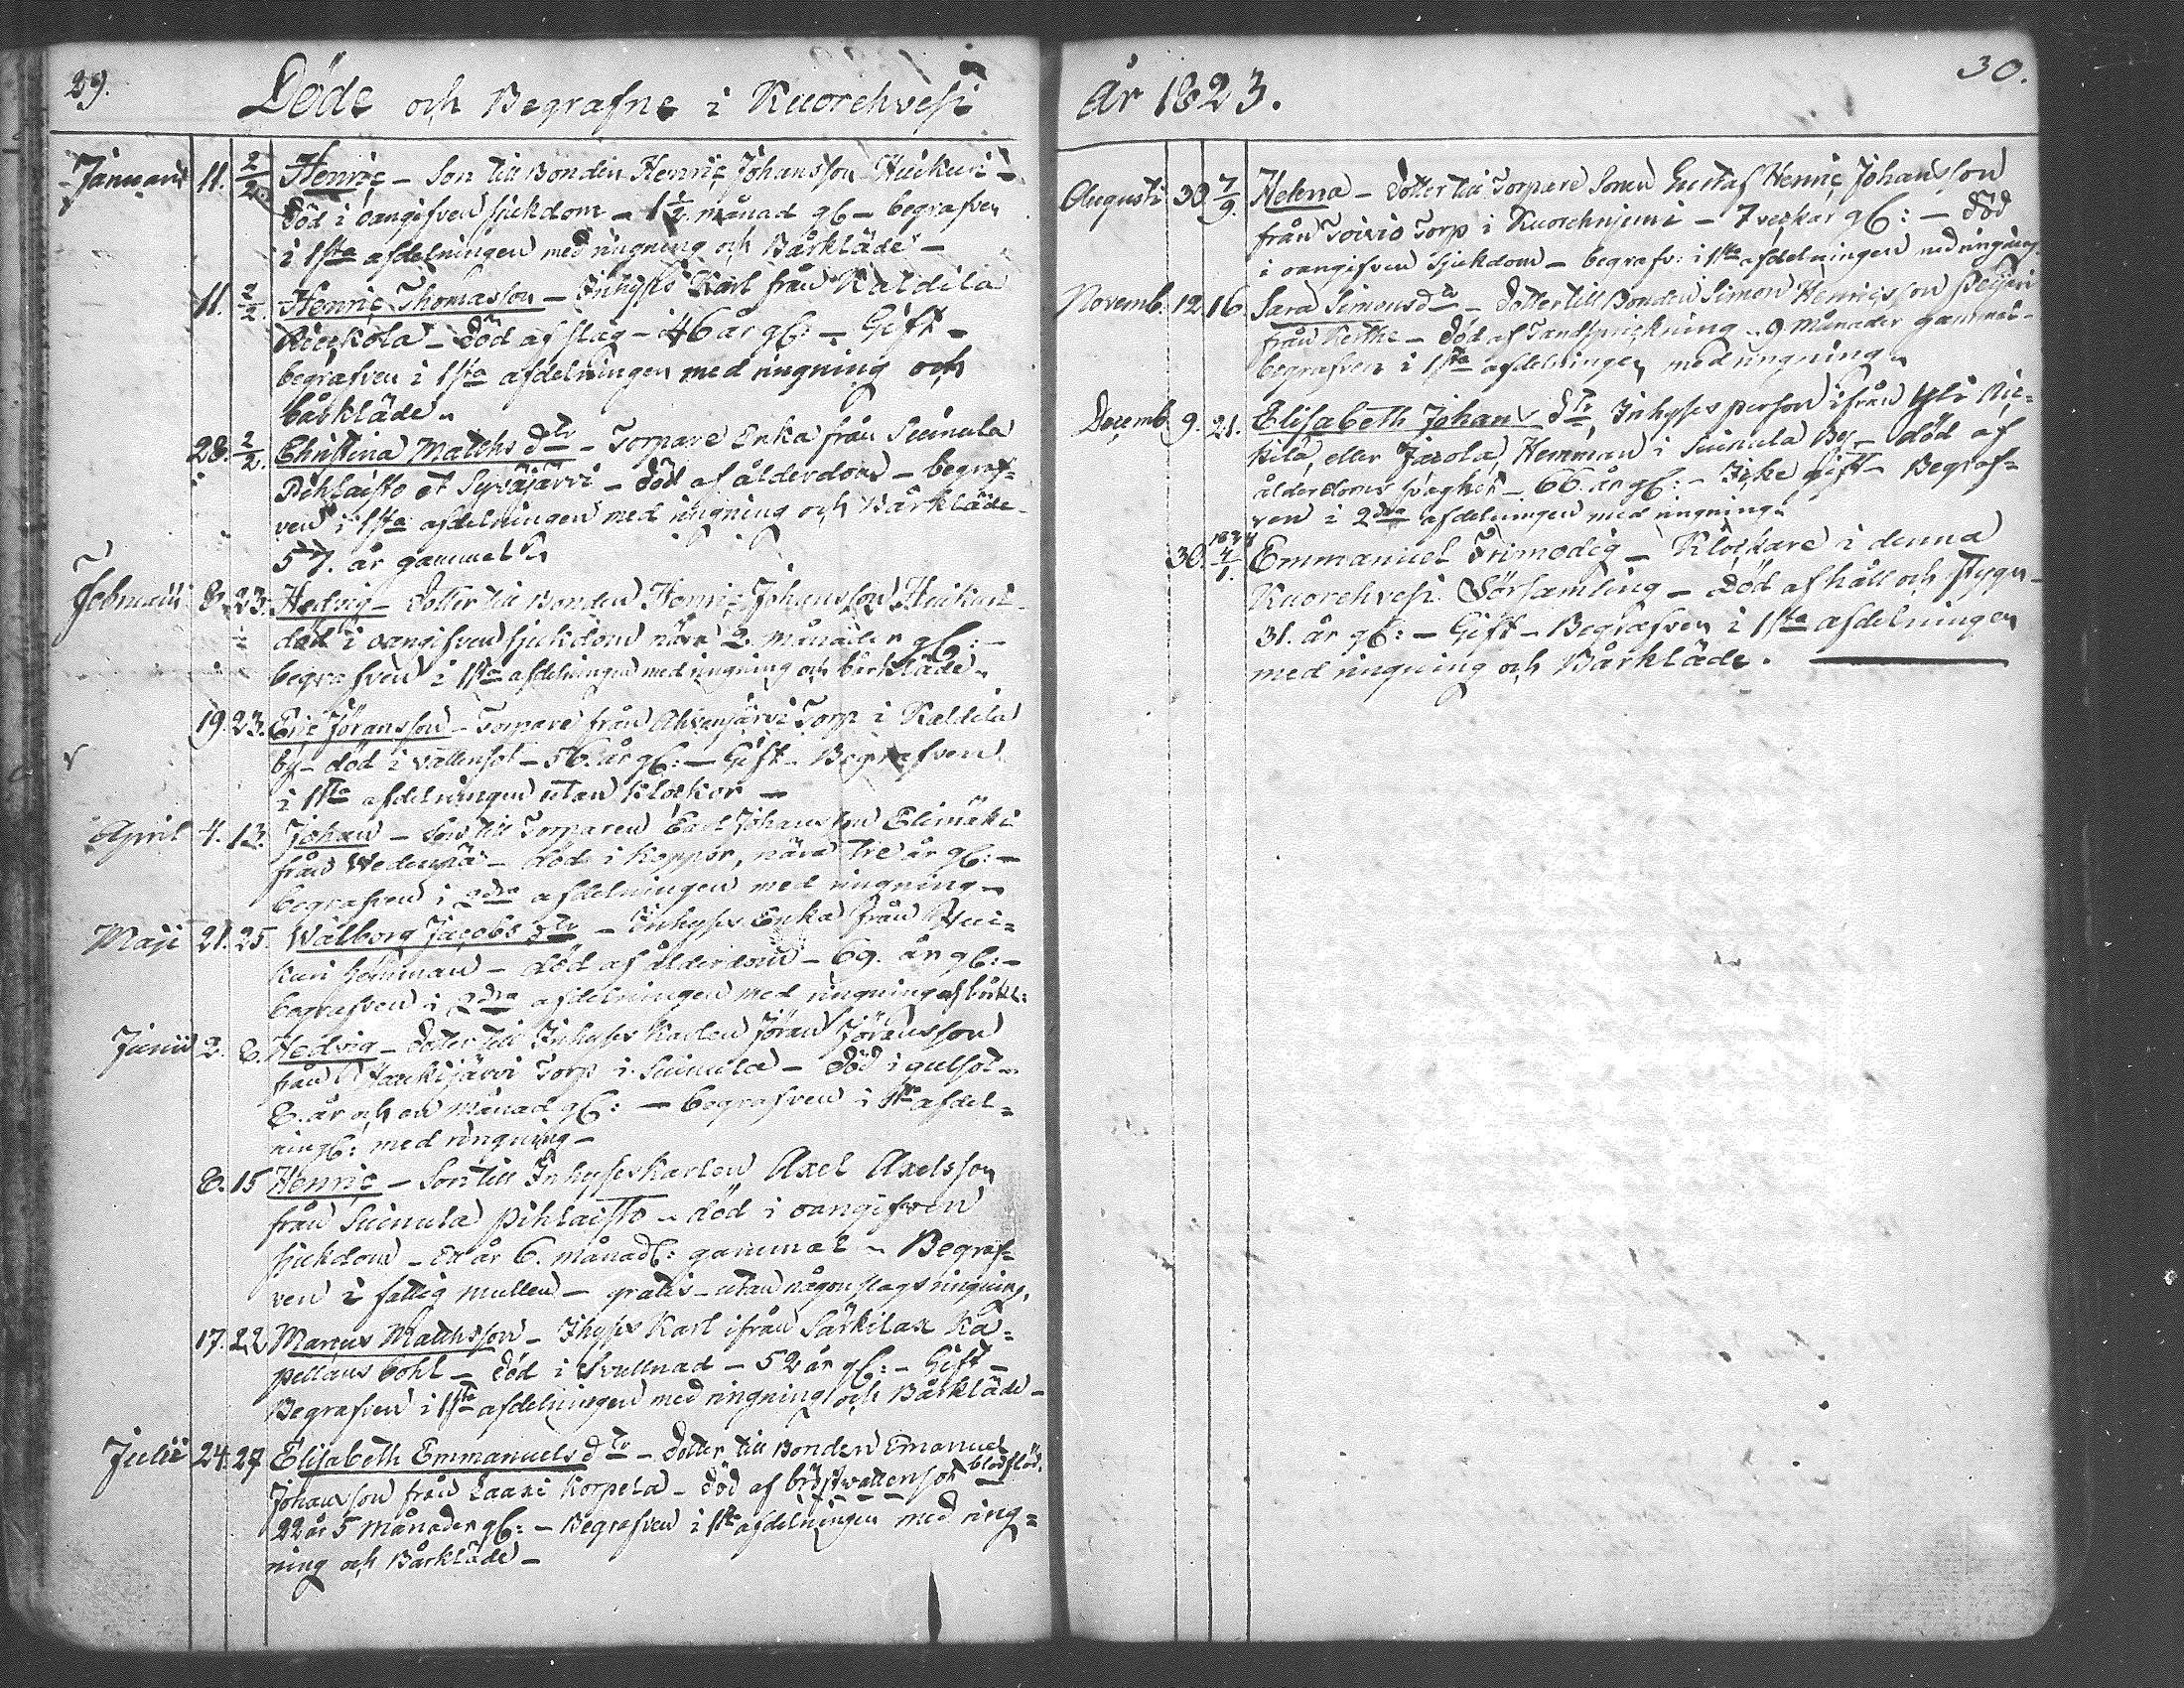 29.
Döde och Begrafne i Kuorehvesi
Januarii 11. 2/2. Henric – Son till Bonden Henric Johansson Huikuri –
död i oangifven sjukdom – 1 1/2 månad gl – begrafven
i 1sta afdelningen med ringning och Bårkläde –
11. 2/2. Henric Thomasson – Inhyses Karl från Kaldila
död af slag – 46 år gl: – Gift –
begrafven i 1sta afdelningen med ringning och
bårkläde.
28. 2/2. Christina Matths dtr – Torpare Enka från Suinula
Pihlaisto et Syväjärvi – död af ålderdom – begraf=
ven i 1sta afdelningen med ringning och Bårkläde –
57. år gammel
Februarii 8. 23. Hedvig – Dotter till Bonden Henric Johansson Huikuri –
död i oangifven sjukdom nära 2. månader gl: –
begrafven i 1sta afdelningen med ringning och bårkläde.
19. 23. Eric Jöransson – Torpare från Ahvenjärvi Torp i Kaldila
by – död i vattensot – 56. år gl: – Gift – Begrafven
i 1sta afdelningen utan klockor –
April 4. 13. Johan – Son till Torparen Carl Johansson Elimäki
från Wedenpä – död i koppor, nära tre år gl: –
begrafven i 2dra afdelningen med ringning –
Maji 21. 25. Wålborg Jacobs dtr – Inhyses Enka från Hui=
kuri hemman – död af ålderdom – 69. år gl: –
begrafven i 2dra afdelningen med ringning och bårkl:
Junii 2. 8. Hedvig – Dotter till Inhyses Karlen Jöran Jöransson
från Haukijärvi Torp i Suinula – död i gulsot –
8. år och en månad gl: – begrafven i 1sta afdel=
ningl: med ringning –
8. 15 Henric – Son till Inhyseskarlen Axel Axelsson
från Suinula Pihlaisto – död i oangifven
sjukdom – ett år 6. månadl: gammal – Begraf=
ven i fattig mullen – gratis – utan någonslags ringning.
17. 22 Marcus Matthsson – Ihyses Karl ifrån Särkilax Ka=
pellans bohl – död i Svullnad – 52 år gl: – Gift –
Begrafven i 1sta afdelningen med ringning och Bårkläde –
Julii 24. 27 Elisabeth Emmanuels dtr – dotter till Bonden Emanuel
Johansson från Laaxi Korpela – död af bröstvattensot blodflöd.
22 år 5 Månader gl: – Begrafven i 1sta afdelningen med ring=
ning och Bårkläde –
30.
År 1823.
Augusti 30 7/9. Helena – dotter till Torpare Sonen Gustaf Henric Johansson
från Toivio Torp i Kuorehniemi – 7 veckar gl: – död
i oangifven sjukdom – begrafv: i 1sta afdelningen med ringning.
Novemb. 12 16 Sara Simons dtr – dotter till Bonden Simon Henricsson
från – död af Tandsprickning – 9. Månader gammal –
begrafven i 1sta afdelningen med ringning.
Decemb. 9. 21. Elisabeth Johans dtr Inhyses person ifrån Yli
kilä, eller Jaxola, Hemman i Suinula By – död af
ålderdoms svaghet – 66 år gl: – Icke gift – Begraf=
ven i 2dra afdelningen med ringning.
30. 1824 4/1. Emmanuel Frimodig – Klockare i denna
Kuorehvesi Församling – död af håll och stygn –
31. år gl: – Gift – Begrafven i 1sta afdelningen
med ringning och Bårkläde.